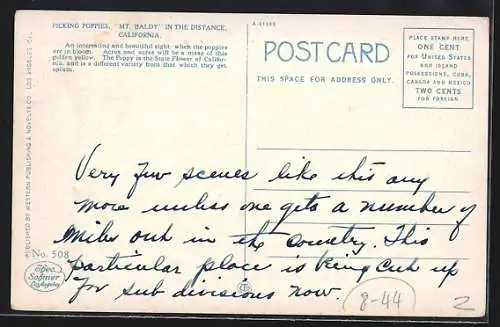 PICKING POPPIES, "MT. BALDY" IN THE DISTANCE,
CALIFORNIA.
An interesting and beautiful sight when the poppies
are in bloom. Acres and acres will be a mass of this
golden yellow. The Poppy is the State Flower of Califor-
nia, and is a different variety from that which they get
opium.
PUBLISHED BY WESTERN PUBLISHING & NOVELTY CO. LOS ANGELES CAL.
No. 508
POST CARD
THIS SPACE FOR ADDRESS ONLY.
PLACE STAMP HERE
ONE CENT
FOR UNITED STATES
AND ISLAND
POSSESSIONS, CUBA,
CANADA AND MEXICO
TWO CENTS
FOR FOREIGN
Very few scenes like this any
more unless one gets a number of
miles out in the Country. This
particular place is being cut up
for sub divisions now.
8-44
2